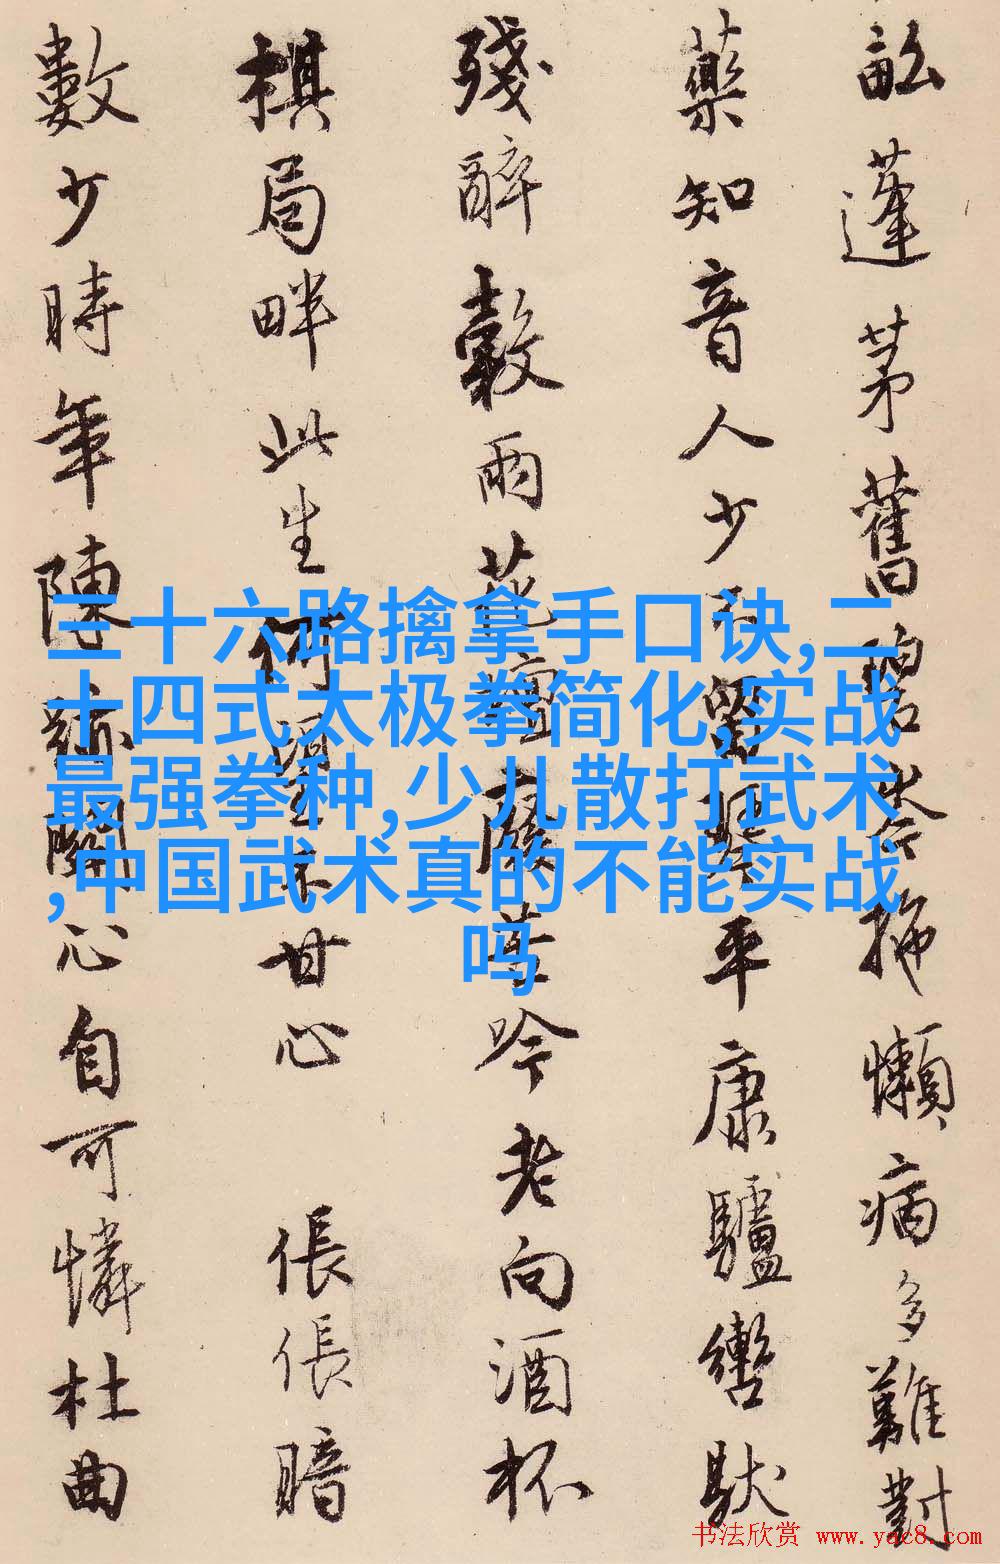 畝蓬茅舊拖懶病多難對
藥知音人少留平康驢轡馱
殘醉穀雨花廢吟老向酒杯
棋局畔此生何望不甘心 倀倀暗
數少時年陳跡關心自可憐杜曲
三十六路擒拿手口诀,二
十四式太极拳简化,实战
最强拳种,少儿散打武术
,中国武术真的不能实战
吗
书法欣赏 www.yac8.com